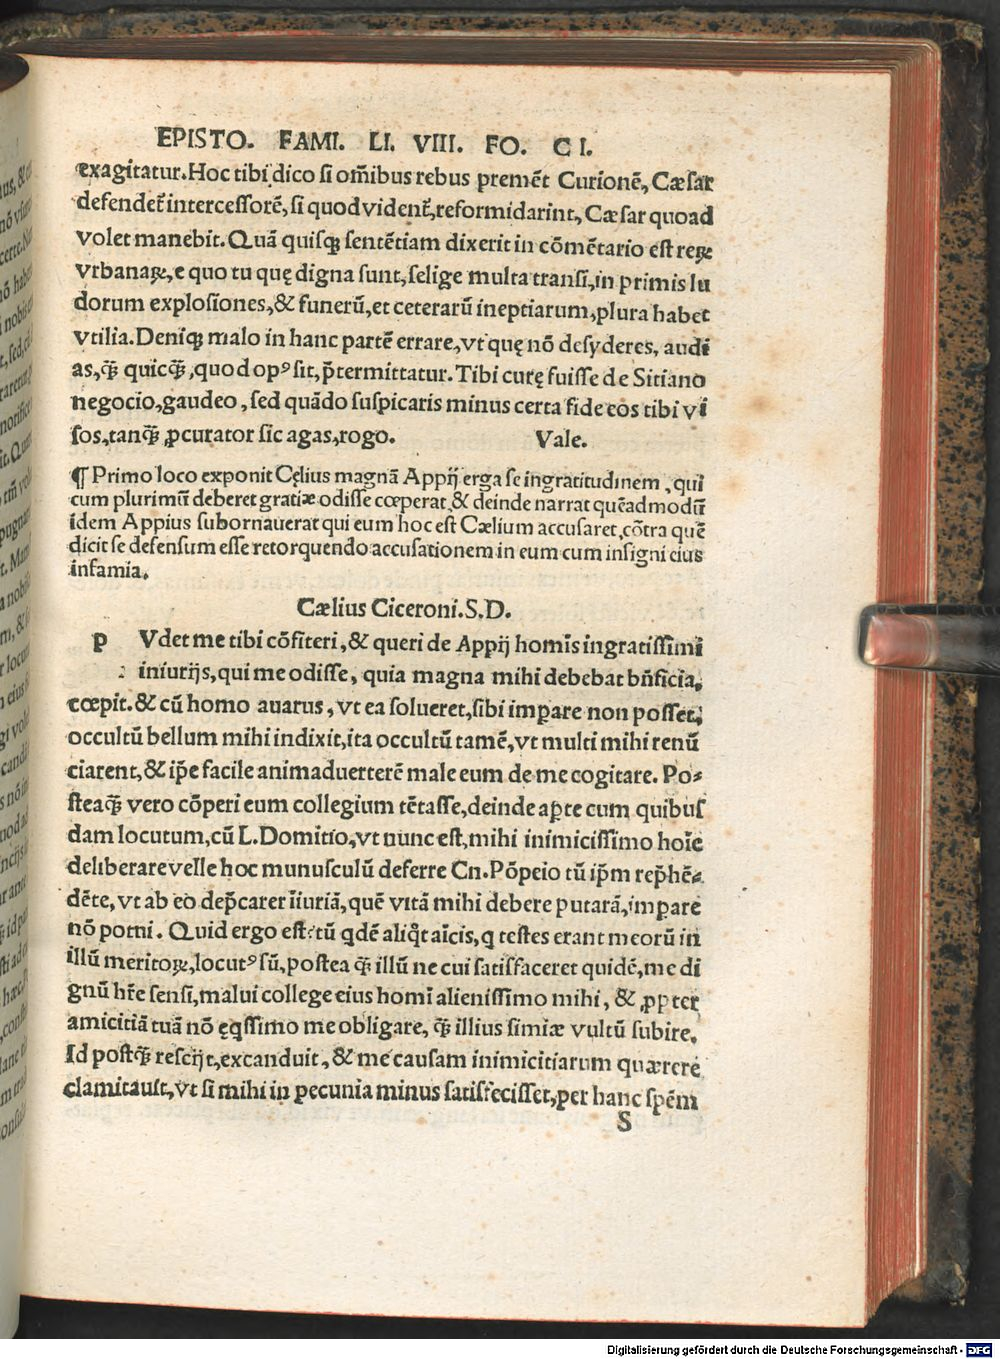 EPISTO. FAMI. LI. VIII. FO. C I.
exagitatur. Hoc tibi dico si om̄ibus rebus premēt Curionē, Cæsar
defendet᷑ intercessorē, si quod vident᷑, reformidarint, Cæsar quoad
volet manebit. Quā quisqꝫ sentētiam dixerit in cōmētario est reꝝ
vrbanaꝝ, e quo tu quę digna sunt, selige multa transi, in primis lu
dorum explosiones, & funerū, et ceterarū ineptiarum, plura habet
vtilia. Deniqꝫ malo in hanc partē errare, vt quę nō desyderes, audi
as, q̄ꝫ quicq̄ꝫ, quod opꝰ sit, p̄termittatur. Tibi curę fuisse de Sitiano
negocio, gaudeo, sed quādo suspicaris minus certa fide eos tibi vi
sos, tanq̄ꝫ ꝓcurator sic agas, rogo. Vale.
¶ Primo loco exponit Cęlius magnā Appij erga se ingratitudinem, qui
cum plurimū deberet gratiæ odisse cœperat & deinde narrat quēadmodū
idem Appius subornauerat qui eum hoc est Cælium accusaret, cōtra quē
dicit se defensum esse retorquendo accusationem in eum cum insigni eius
infamia.
Cælius Ciceroni. S. D.
p Vdet me tibi cōfiteri, & queri de Appij homīs ingratissimi
iniurijs, qui me odisse, quia magna mihi debebat bn̄ficia,
cœpit. & cū homo auarus, vt ea solueret, sibi imꝑare non posset,
occultū bellum mihi indixit, ita occultū tamē, vt multi mihi renū
ciarent, & ip̄e facile animaduerterē male eum de me cogitare. Po-
steaq̄ꝫ vero cōperi eum collegium tētasse, deinde aꝑte cum quibus
dam locutum, cū L. Domitio, vt nunc est, mihi inimicissimo hoīe
deliberare velle hoc munusculū deferre Cn. Pōpeio tū ip̄m rep̄hē-
dēte, vt ab eo dep̄carer īiuriā, quē vitā mihi debere putarā, imꝑare
nō potui. Quid ergo est? tū qdē aliq̄t aīcis, q testes erant meorū in
illū meritoꝝ, locutꝰ sū, postea q̄ꝫ illū ne cui satisfaceret quidē, me di
gnū hr̄e sensi, malui college eius homī alienissimo mihi, & ꝓpter
amicitiā tuā nō ęqssimo me obligare, q̄ꝫ illius simiæ vultū subire.
Id postq̄ꝫ rescijt, excanduit, & me causam inimicitiarum quærere
clamitauit, vt si mihi in pecunia minus satisfecisset, per hanc spēm
S
Digitalisierung gefördert durch die Deutsche Forschungsgemeinschaft - DFG